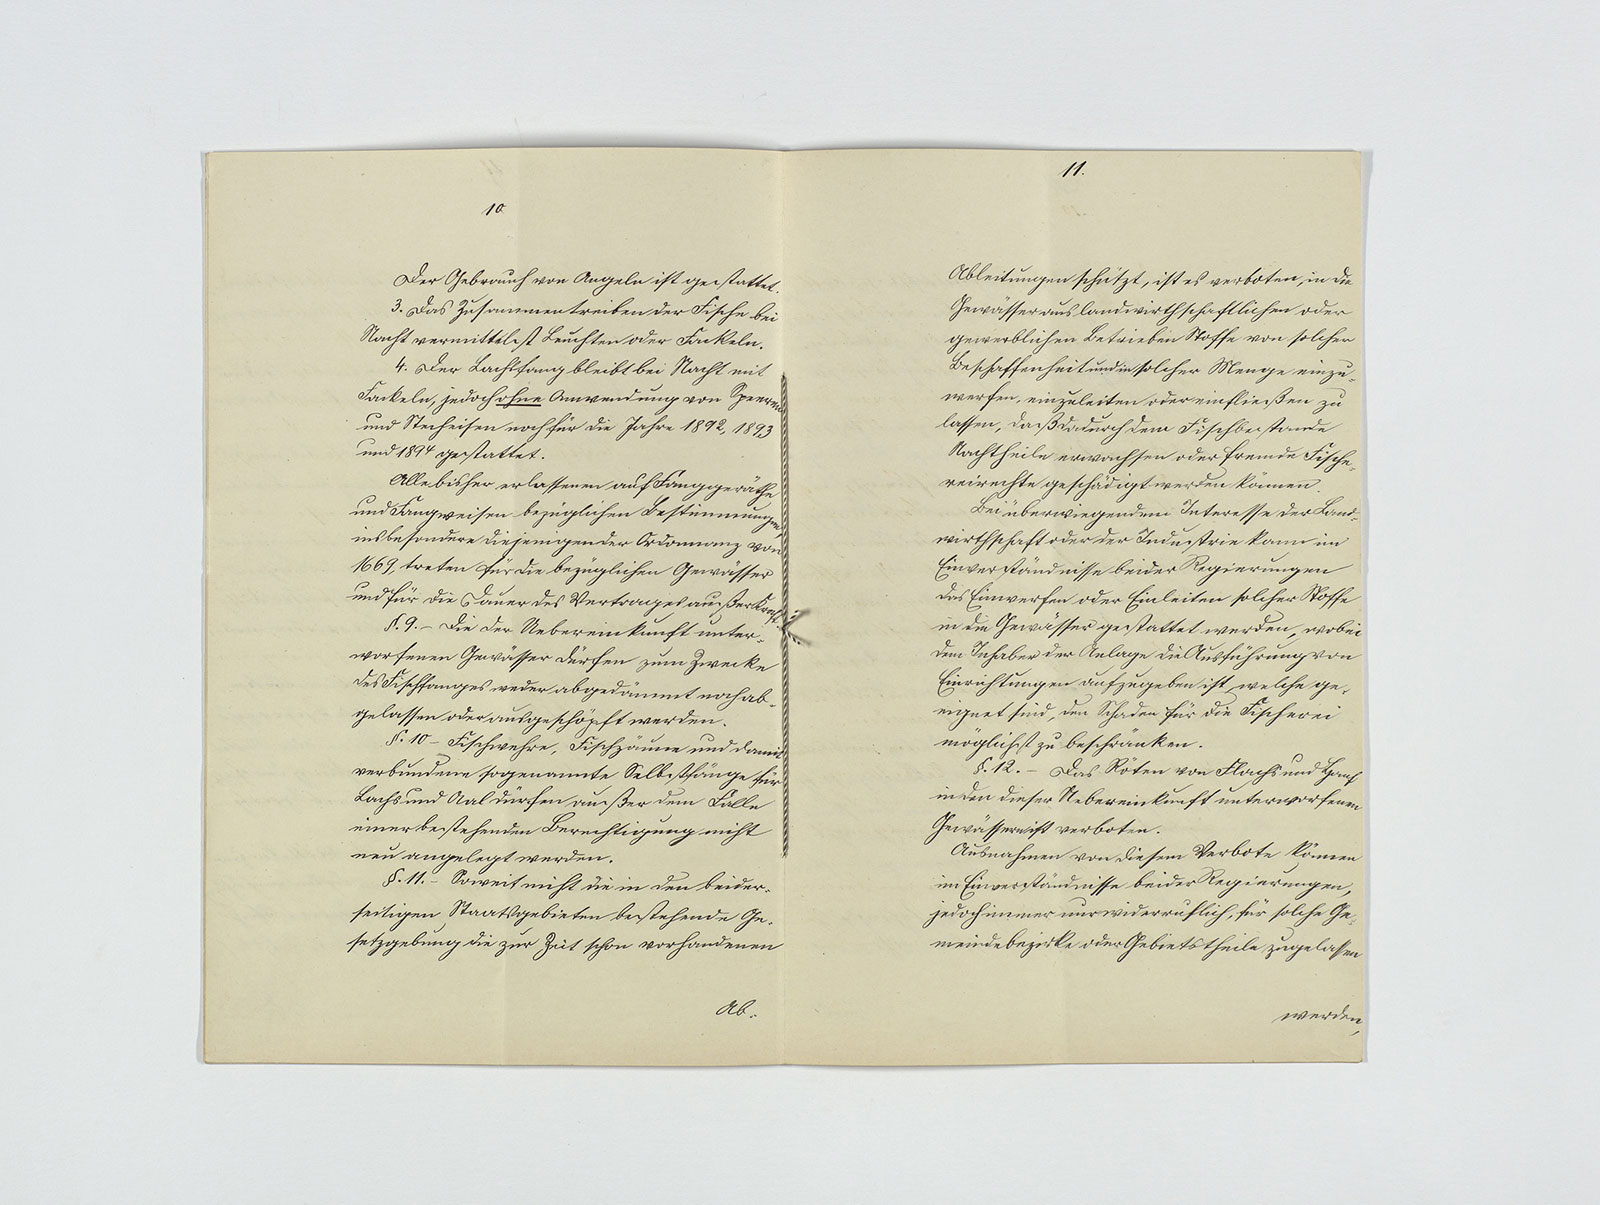 10
Der Gebrauch von Angeln ist gestattet.
3. Das Zusammentreiben der Fische bei
Nacht vermittelst Leuchten oder Fackeln.
4. Der Lachsfang bleibt bei Nacht mit
Fackeln, jedoch ohne Anwendung von Speeren
und Stecheisen noch für die Jahre 1892, 1893
und 1894 gestattet.
Alle bisher erlassenen auf Fanggeräthe
und Fangweisen bezüglichen Bestimmungen,
insbesondere diejenigen der Ordonnanz von
1669, treten für die bezüglichen Gewässer
und für die Dauer des Vertrages außer Kraft.
§. 9. – Die der Uebereinkunft unter-
worfenen Gewässer dürfen zum Zwecke
des Fischfanges weder abgedämmt noch ab-
gelassen oder ausgeschöpft werden.
§. 10 – Fischwehre, Fischzäune und damit
verbundene sogenannte Selbstfänge für
Lachs und Aal dürfen außer dem Falle
einer bestehenden Berechtigung nicht
neu angelegt werden.
§. 11. – Soweit nicht die in den beider-
seitigen Staatsgebieten bestehende Ge-
setzgebung die zur Zeit schon vorhandenen
Ab-
11.
Ableitungen schützt, ist es verboten, in die
Gewässer aus landwirthschaftlichen oder
gewerblichen Betrieben Stoffe von solcher
Beschaffenheit und in solcher Menge einzu-
werfen, einzuleiten oder einfließen zu
lassen, daß dadurch dem Fischbestande
Nachtheile erwachsen oder fremde Fische-
reirechte geschädigt werden können.
Bei überwiegendem Interesse der Land-
wirthschaft oder der Industrie kann im
Einverständnisse beider Regierungen
das Einwerfen oder Einleiten solcher Stoffe
in die Gewässer gestattet werden, wobei
dem Inhaber der Anlage die Ausführung von
Einrichtungen aufzugeben ist, welche ge-
eignet sind, den Schaden für die Fischerei
möglichst zu beschränken.
§. 12. – Das Röten von Flachs und Hanf
in den dieser Uebereinkunft unterworfenen
Gewässern ist verboten.
Ausnahmen von diesem Verbote können
im Einverständnisse beider Regierungen,
jedoch immer nur widerruflich, für solche Ge-
meindebezirke oder Gebietstheile zugelassen
werden,